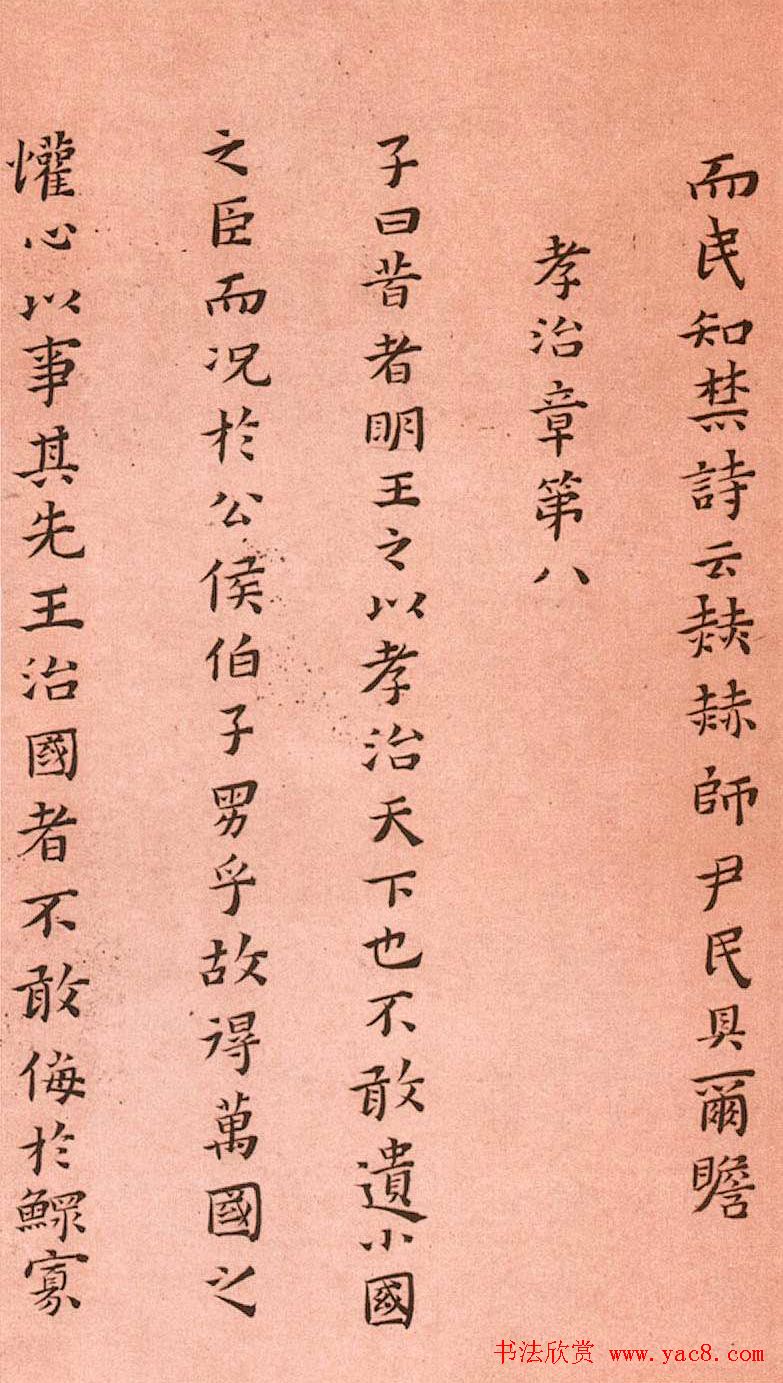 而民知禁詩云赫赫師尹民具爾瞻
孝治章第八
子曰昔者明王之以孝治天下也不敢遺小國
之臣而况於公侯伯子男乎故得萬國之
懽心以事其先王治國者不敢侮於鰥寡
书法欣赏 www.yac8.com